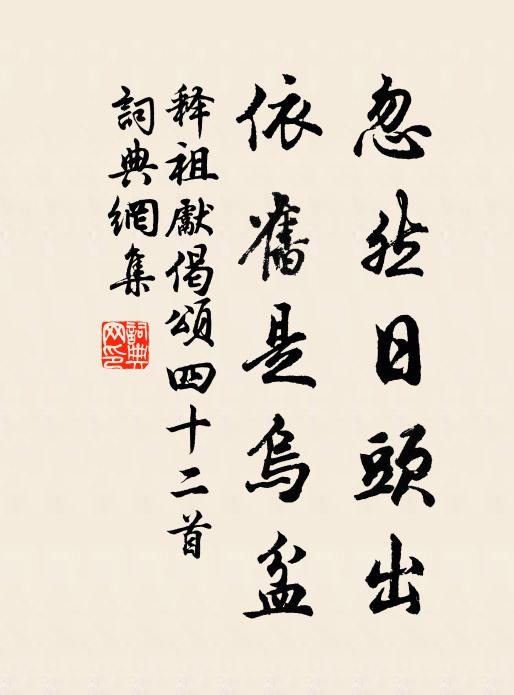 忽然日頭出
依舊是烏盆
释祖獻偈頌四十二首
詞典網集
詞典网印